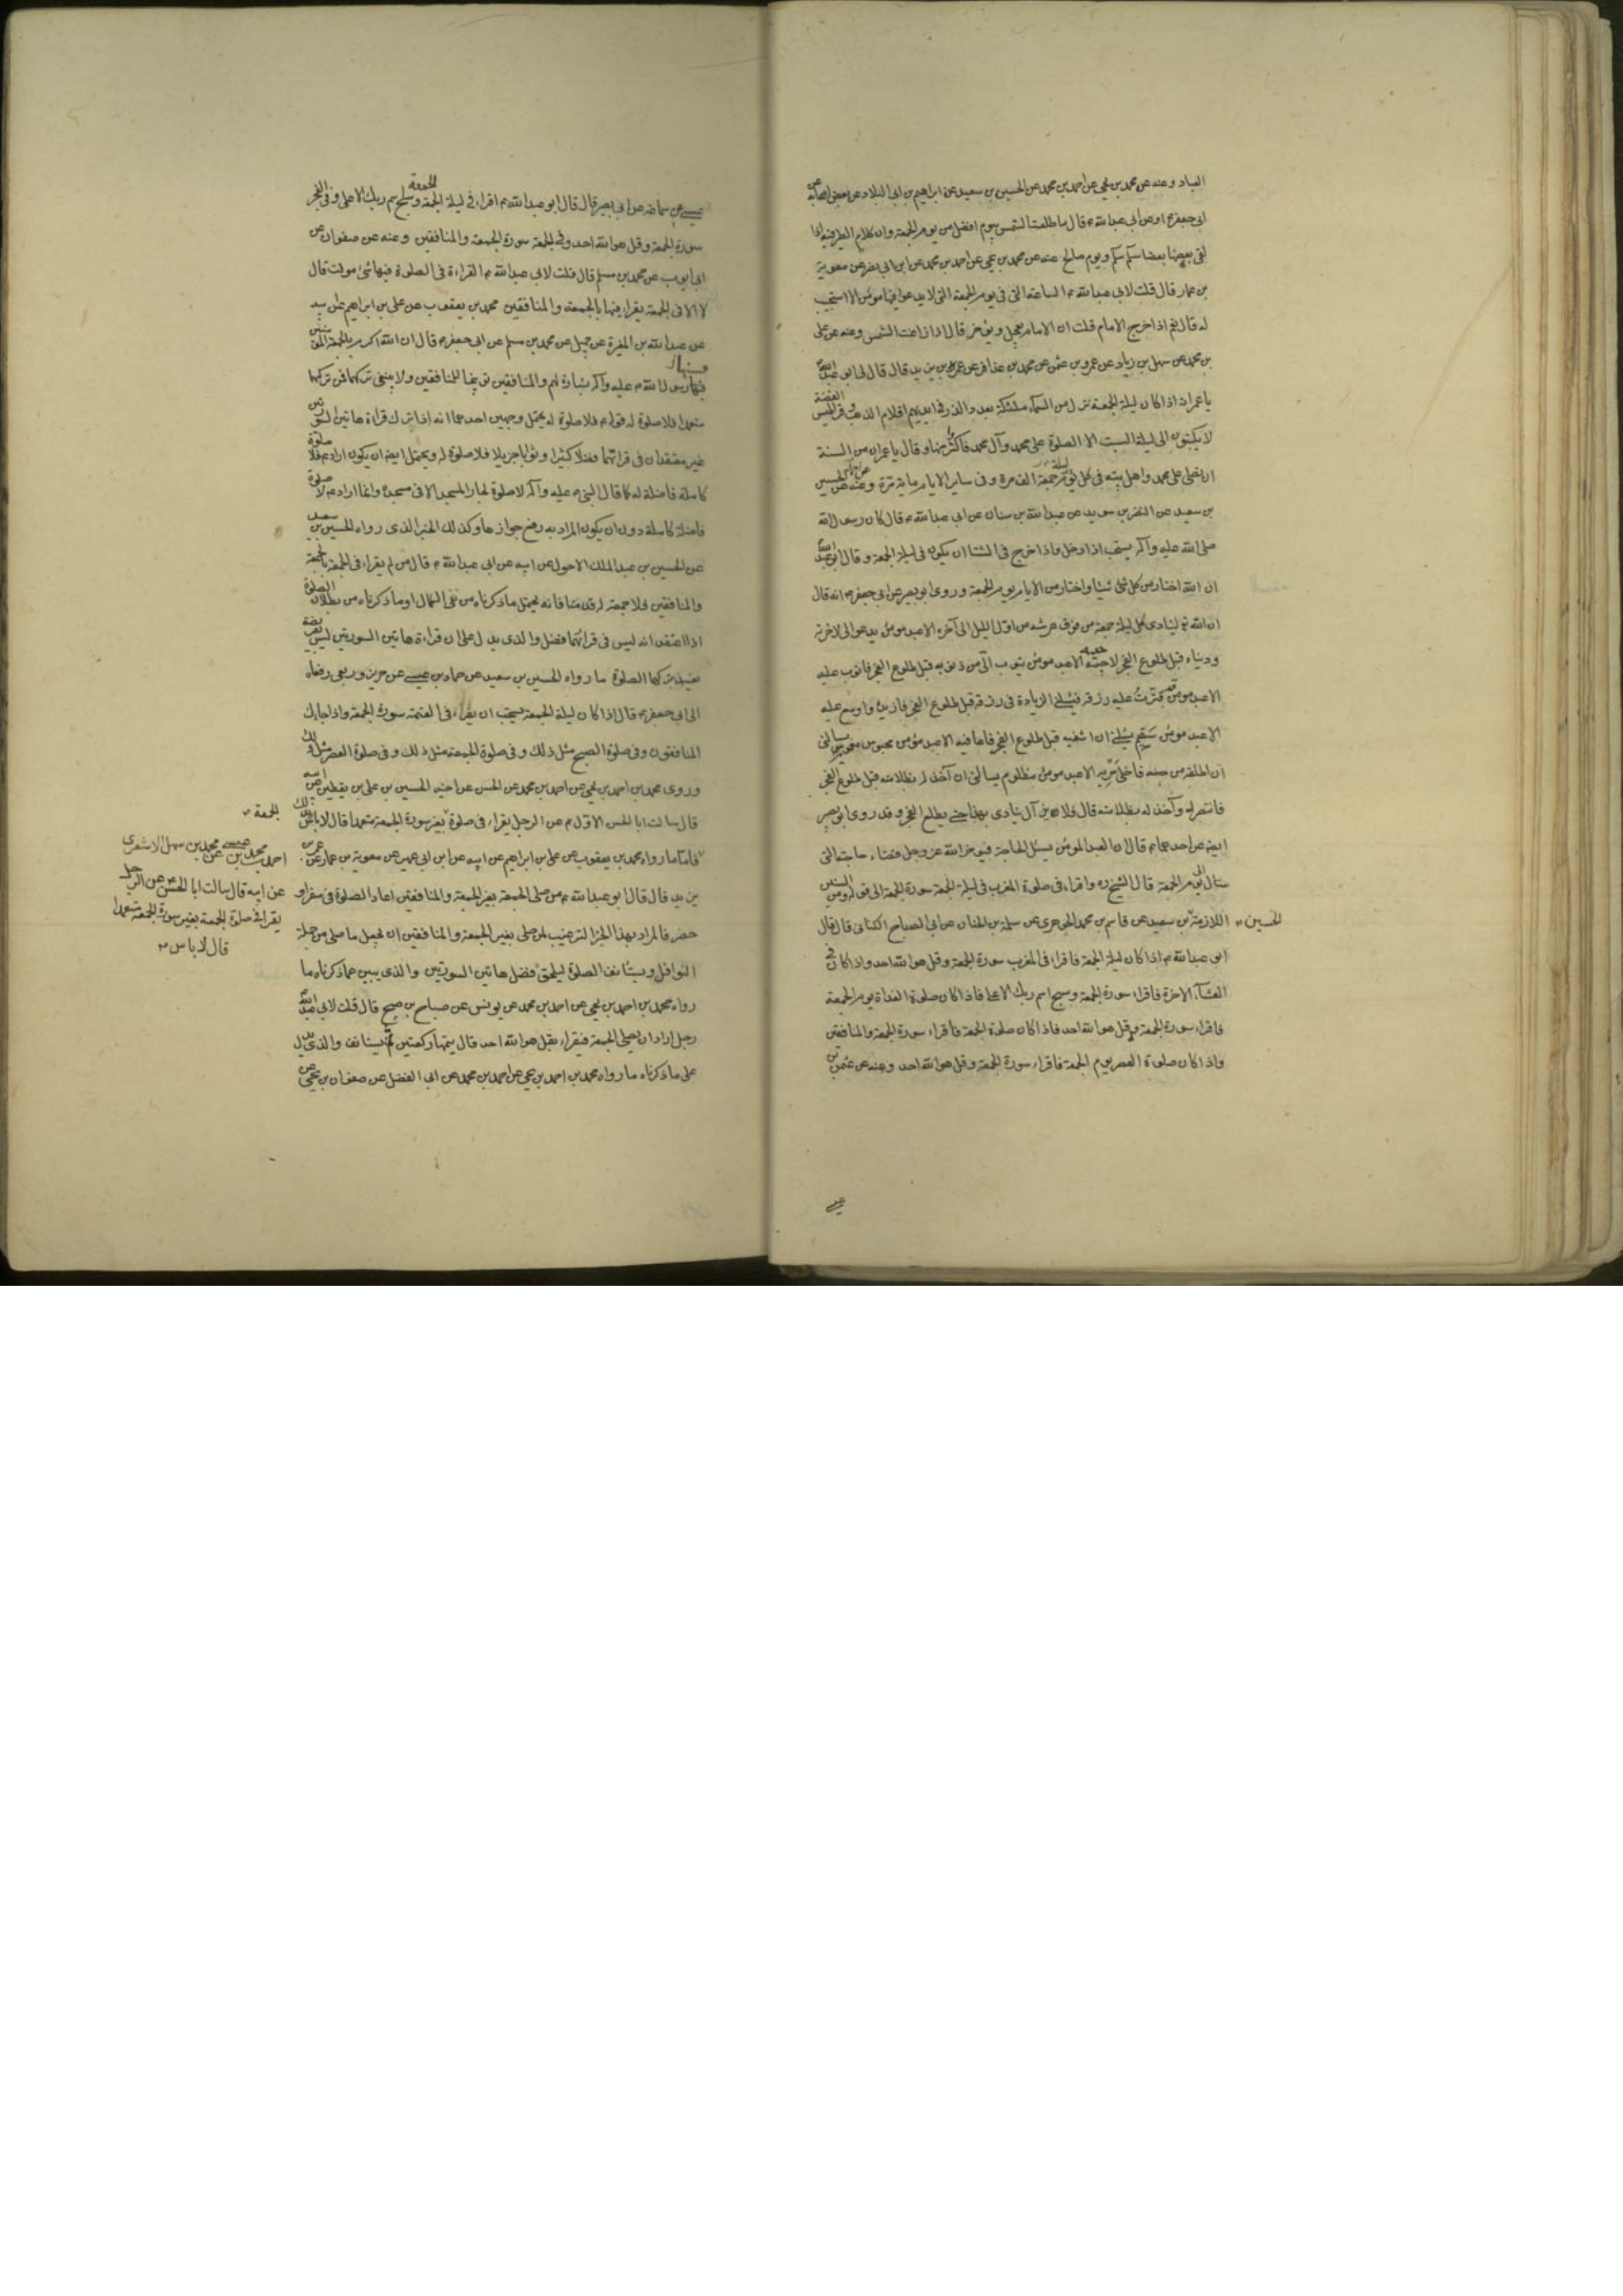 العباد وعنه عن محمد بن يحيى عن احمد بن محمد عن الحسين بن سعيد عن ابراهيم بن ابى البلاد عن بعض اصحابه عن
ابى جعفر ع او عن ابى عبد الله ع قال ما طلعت الشمس بيوم افضل من يوم الجمعة وان كلام الطير فيه اذا
لقى بعضها بعضا سلم سلم ويوم صالح عنه عن محمد بن يحيى عن احمد بن محمد عن ابن ابى نصر عن معوية
بن عمار قال قلت لابى عبد الله ع الساعة التى فى يوم الجمعة التى لا يدعو فيها مؤمن الا استجيب
له قال نعم اذا خرج الامام قلت ان الامام يعجل ويؤخر قال اذا زاغت الشمس وعنه عن على
بن محمد عن سهل بن زياد عن عمرو بن عثمن عن محمد بن عذافر عن عمر بن يزيد قال قال لى ابو عبد الله
يا عمر انه اذا كان ليلة الجمعة نزل من السماء ملئكة بعدد الذر فى ايديهم اقلام الذهب وقراطيس الفضة
لا يكتبون الى ليلة السبت الا الصلوة على محمد وآل محمد فاكثر منها وقال يا عمر ان من السنة
ان تصلى على محمد واهل بيته فى كل يوم جمعة الف مرة وفى ساير الايام ماية مرة وعنه عن الحسين
بن سعيد عن النضر بن سويد عن عبد الله بن سنان عن ابى عبد الله ع قال كان رسول الله
صلى الله عليه وآله يستحب اذا دخل واذا خرج فى الشتا ان يكون فى ليلة الجمعة وقال ابو عبد الله
ان الله اختار من كل شئ شيئا واختار من الايام يوم الجمعة وروى ابو بصير عن ابى جعفر ع انه قال
ان الله تع لينادى كل ليلة جمعة من فوق عرشه من اول الليل الى آخره الا عبد مؤمن يدعو الى لاخرته
ودنياه قبل طلوع الفجر لاجيبه الا عبد مؤمن يتوب الى من ذنوبه قبل طلوع الفجر فاتوب عليه
الا عبد مؤمن قد قترت عليه رزقه فيسئلنى الزيادة فى رزقه قبل طلوع الفجر فازيده واوسع عليه
الا عبد مؤمن سقيم يسئلنى ان اشفيه قبل طلوع الفجر فاعافيه الا عبد مؤمن محبوس مغموم يسالنى
ان اطلقه من حبسه فاخلى سربه الا عبد مؤمن مظلوم يسالنى ان آخذ له بظلامته قبل طلوع الفجر
فانتصر له وآخذ له بظلامته قال فلا يزال ينادى بهذا حتى يطلع الفجر وقد روى ابو بصير
ايضا عن احدهما ع قال ان العبد المؤمن يسئل الحاجة فيؤخر الله عز وجل قضاء حاجته التى
سئال الى يوم الجمعة قال الشيخ ره واقراء فى صلوة المغرب فى ليلة الجمعة سورة الجمعة الى قوله ومن السنن
اللازمة الحسين بن سعيد عن قاسم بن محمد الجوهرى عن سلمة بن الحنان عن ابى الصباح الكنانى قال قال
ابو عبد الله ع اذا كان ليلة الجمعة فاقراء فى المغرب سورة الجمعة وقل هو الله احد واذا كان فى
العشآء الاخرة فاقراء سورة الجمعة وسبح اسم ربك الاعلى فاذا كان صلوة الغداة يوم الجمعة
فاقراء سورة الجمعة وقل هو الله احد فاذا كان صلوة الجمعة فاقراء سورة الجمعة والمنافقين
واذا كان صلوة العصر يوم الجمعة فاقراء سورة الجمعة وقل هو الله احد وعنه عن عثمن بن
عيسى عن سماعة عن ابى بصير قال قال ابو عبد الله ع اقراء فى ليلة الجمعة الجمعة وسبح اسم ربك الاعلى وفى الفجر
سورة الجمعة وقل هو الله احد وفى الجمعة سورة الجمعة والمنافقين وعنه عن صفوان عن
ابى ايوب عن محمد بن مسلم قال قلت لابى عبد الله ع القراءة فى الصلوة فيها شئ موقت قال
لا الا فى الجمعة يقراء فيها بالجمعة والمنافقين محمد بن يعقوب عن على بن ابراهيم عن ابيه
عن عبد الله بن المغيرة عن جميل عن محمد بن مسلم عن ابى جعفر ع قال ان الله اكرم بالجمعة المؤمنين
فسنها رسول الله ص عليه وآله بشارة لهم والمنافقين توبيخا للمنافقين ولا ينبغى تركها فمن تركها
متعمدا فلا صلوة له قوله ع فلا صلوة له يحتمل وجهين احدهما انه اذا ترك قراءة هاتين السورتين
غير معتقد ان فى قرائتهما فضلا كثيرا وثوابا جزيلا فلا صلوة له ويحتمل ايضا ان يكون اراد ع فلا صلوة
كاملة فاضلة له كما قال النبى ص عليه وآله لا صلوة لجار المسجد الا فى مسجده وانما اراد ع لا صلوة
فاضلة كاملة دون ان يكون المراد به رفع جوازها وكذلك الخبر الذى رواه الحسين بن سعيد
عن الحسين بن عبد الملك الاحول عن ابيه عن ابى عبد الله ع قال من لم يقراء فى الجمعة بالجمعة
والمنافقين فلا جمعة له قدمنا فانه يحتمل ما ذكرناه من نفى الكمال او ما ذكرناه من بطلان الصلوة
اذا اعتقد انه ليس فى قرائتهما فضل والذى يدل على ان قراءة هاتين السورتين ليس بفريضة
يفسد بتركها الصلوة ما رواه الحسين بن سعيد عن حماد بن عيسى عن حريز وربعى رفعاه
الى ابى جعفر ع قال اذا كان ليلة الجمعة يستحب ان يقراء فى العتمة سورة الجمعة واذا جاءك
المنافقون وفى صلوة الصبح مثل ذلك وفى صلوة الجمعة مثل ذلك وفى صلوة العصر مثل ذلك
وروى محمد بن احمد بن يحيى عن احمد بن محمد عن الحسن عن اخيه الحسين بن على بن يقطين عن ابيه
قال سالت ابا الحسن الاول ع عن الرجل يقراء فى صلوة بغير سورة الجمعة متعمدا قال لا باس بذلك
الجمعة
عنه عن محمد بن سهل الاشعرى
عن ابيه قال سالت ابا الحسن ع عن الرجل
يقراء فى صلوة الجمعة بغير سورة الجمعة متعمدا
قال لا باس
فاما ما رواه محمد بن يعقوب عن على بن ابراهيم عن ابيه عن ابن ابى عمير عن معوية بن عمار عن عمر بن
يزيد قال قال ابو عبد الله ع من صلى الجمعة بغير الجمعة والمنافقين اعاد الصلوة فى سفر او
حضر فالمراد بهذا الخبر الترغيب لمن صلى بغير الجمعة والمنافقين ان يجعل ما صلى من جملة
النوافل ويستانف الصلوة ليلحق فضل هاتين السورتين والذى يبين عما ذكرناه ما
رواه محمد بن احمد بن يحيى عن احمد بن محمد عن يونس عن صباح بن صبيح قال قلت لابى عبد الله
رجل اراد ان يصلى الجمعة فيقراء بقل هو الله احد قال يتمها ركعتين ثم يستانف والذى يدل
على ما ذكرناه ما رواه محمد بن احمد بن يحيى عن احمد بن محمد عن ابى الفضل عن صفوان بن يحيى عن